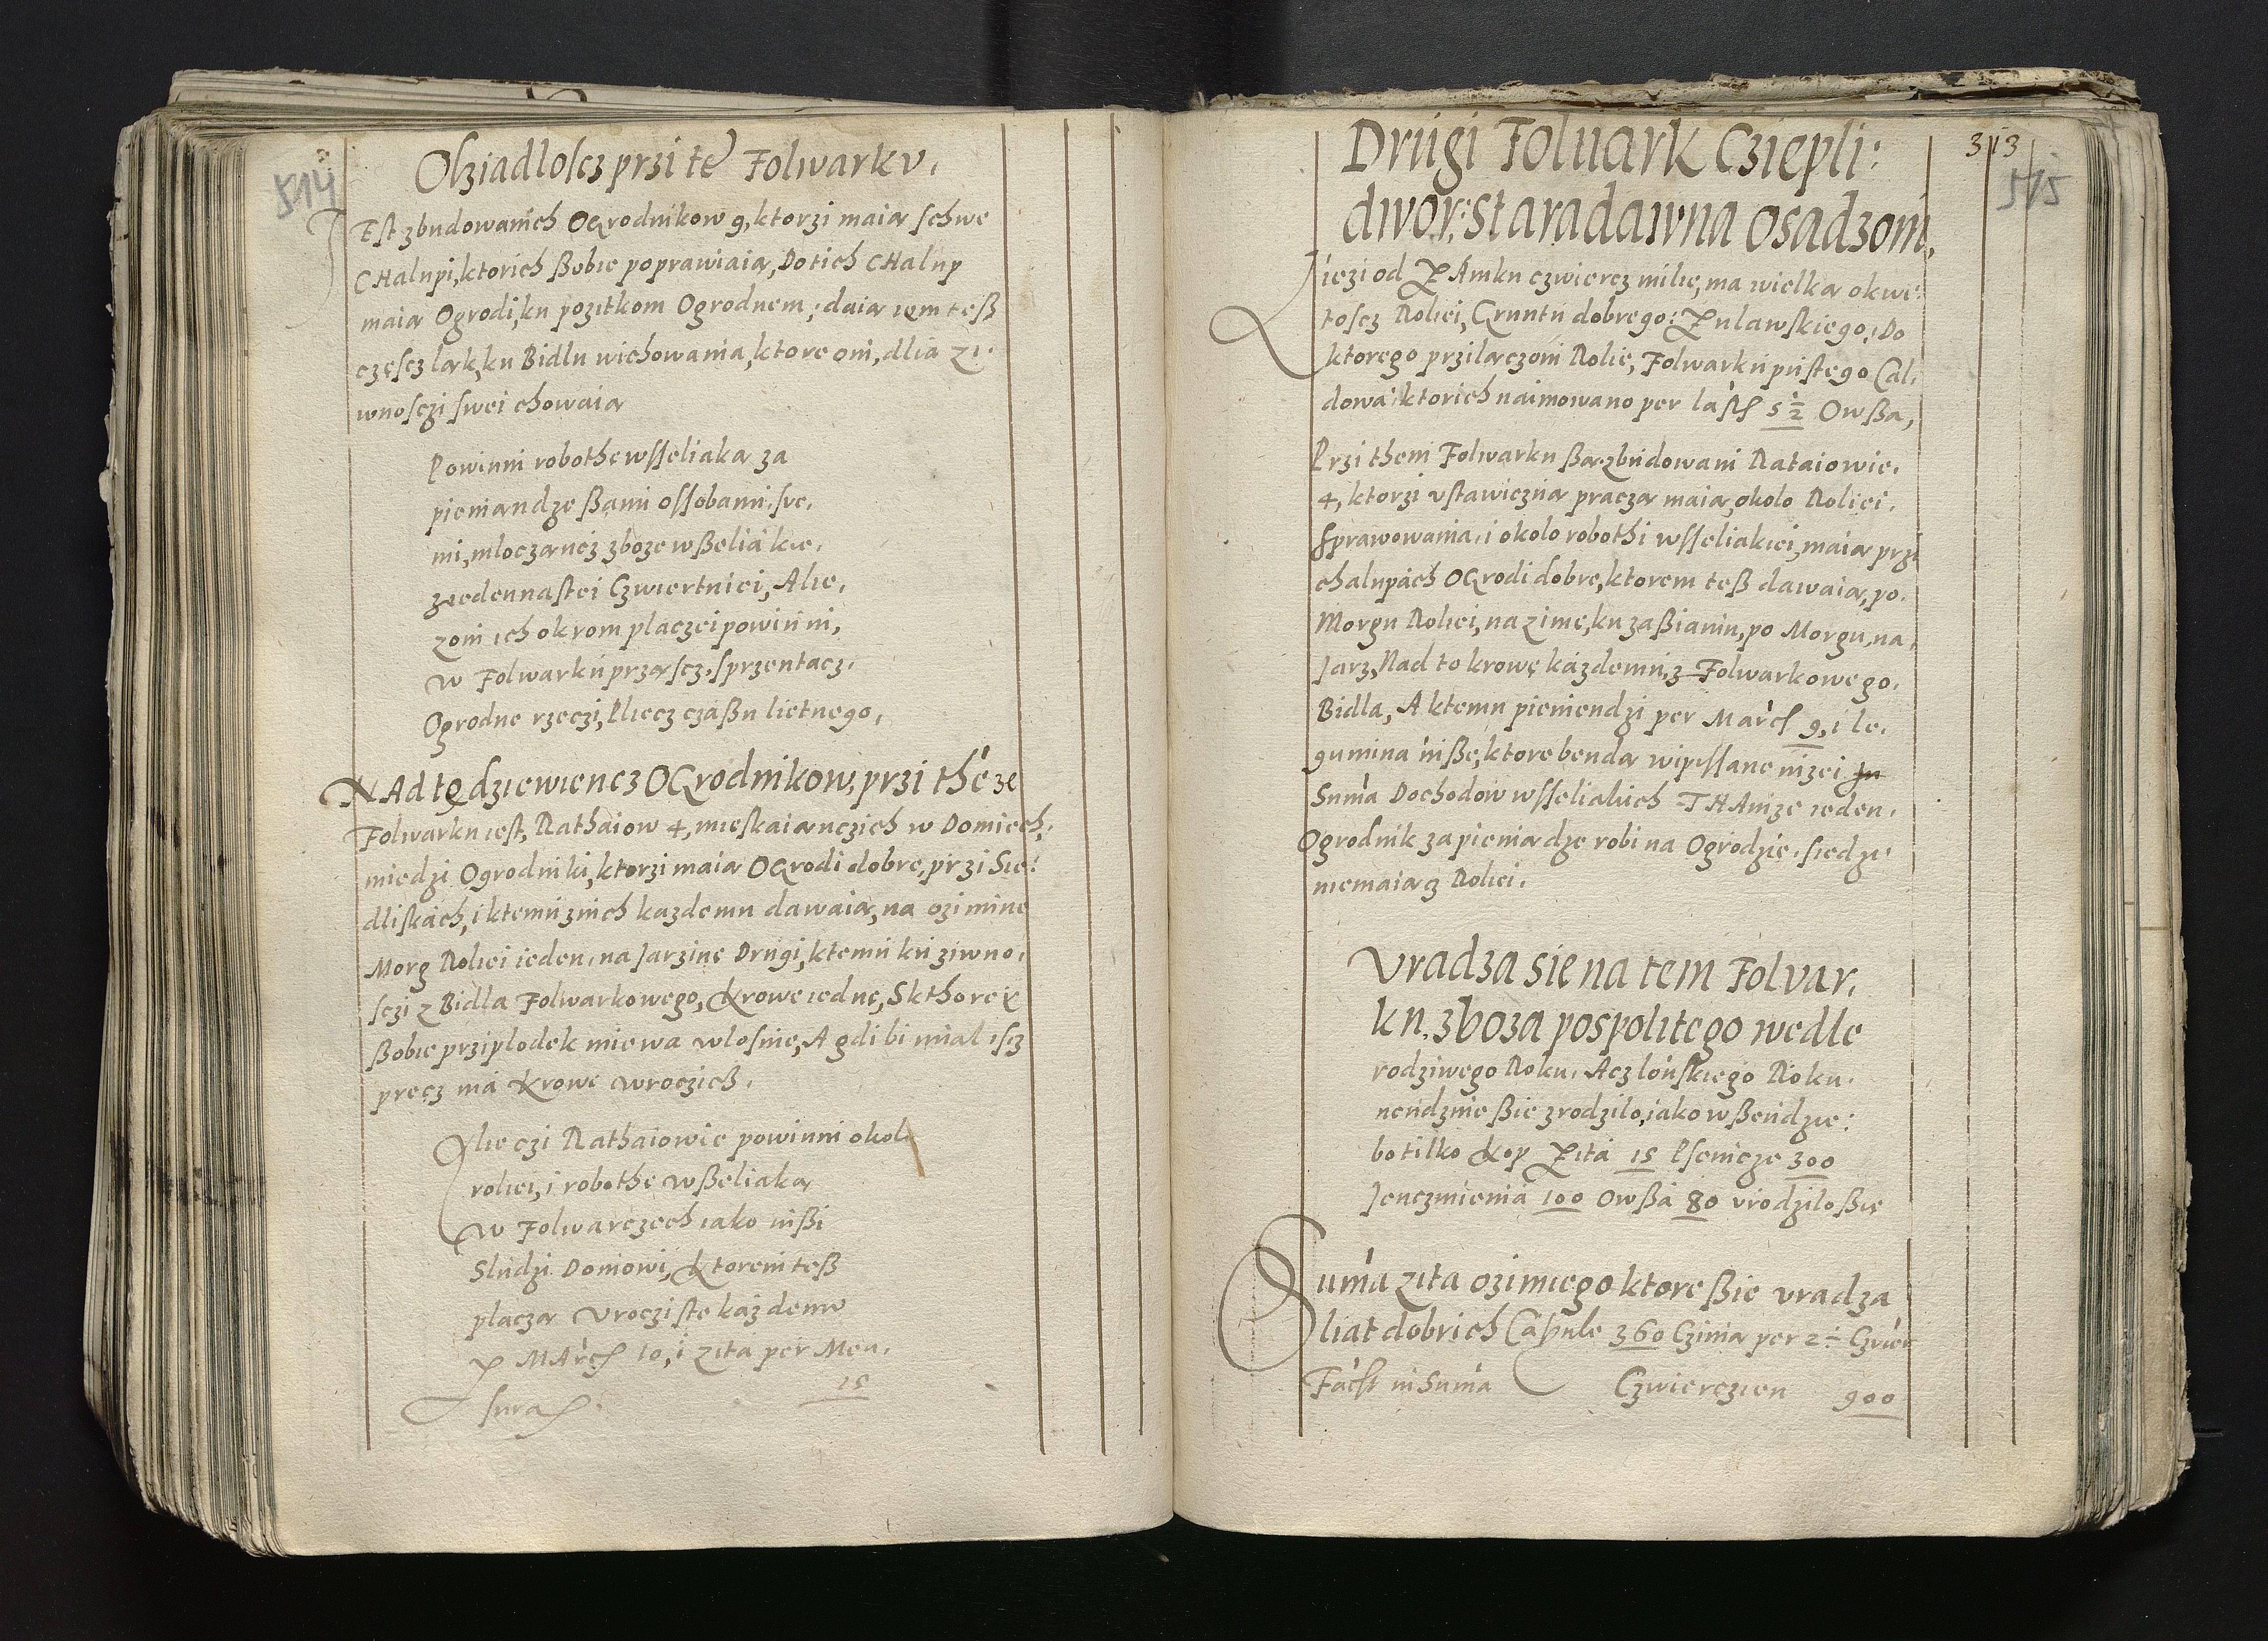 514
Osziadloscz przi te Folwarku.
Jest zbudowanich OGrodnikow 9, ktorzi maia schwe
CHalupi, ktorich ßobie poprawiaia, Do tich CHalup
maia Ogrodi, ku pozitkom Ogrodnem, daia iem teß
częscz ląk, ku Bidlu wichowania, ktore oni, dlia zi-
wnosczi swei chowaia
Powinni robothe wsseliaka za
pieniandze ßami ossobami sve.
mi, mloczancz zboze wßeliakie.
z iedennastei Czwiertniei, Alie.
zoni ich okrom placzei powinni,
w Folwarku przascz, sprzentacz.
Ogrodne rzeczi, Pliecz czaßu lietnego,
NAd tę dziewiencz OGrodnikow, przi the ze
Folwarku iest, Rathaiow 4, mieskaianczich w Domiech,
miedzi Ogrodniki, ktorzi maia OGrodi dobre, przi Sie:
dliskach, i ktemu znich kazdemu dawaia, na ozimine
Morg Roliei ieden, na Jarzine Drugi, ktemu ku ziwno.
sczi z Bidla Folwarkowego, Krowe iednę, Skthorei
ßobie prziplodek miewa wlosnie, A gdi bi mial iscz
precz ma Krowe wroczicz.
Alie czi Rathaiowie powinni okolo
roliei, i robothe wßeliaka
w Folwarczech iako inßi
Sludzi Domowi, Ktorem teß
placza Vrocziste każdemu
p MArcß 10, i zita per Men.
suras. 15
313
515
Drugi Foluark Cziepli:
dwor: Staradawna osadzoni,
Liezi od ZAmku czwiercz milie, ma wielka okwi:
toscz Roliei, Gruntu dobrego: Zulawskiego, Do
ktorego przilaczoni Rolie, Folwarku pustego Cal.
dowa ktorich naimowano per last 5 ½ Owßa,
Przi them Folwarku ßa zbudowani Rataiowie.
4, ktorzi vstawiczna pracza maia, okolo Roliei.
sprawowania, i okolo robothi wsseliakiei, maia przi
chalupach OGrodi dobre, ktorem teß dawaia, po.
Morgu Roliei, na zime, ku zaßianiu, po Morgu, na.
Jarz, Nad to krowę kazdemu, z Folwarkowego.
Bidla, A ktemu pieniendzi per Marcß 9, i le.
gumina inße, ktore benda wipissane nizei
Suma Dochodow wsseliakich THAmze ieden.
Ogrodnik za pieniadze robi na Ogrodzie, siedzi
niemaiacz Roliei.
Vradza sie na tem Folvar.
ku. zboza pospolitego wedle
rodziwego Roku. Acz lonskiego Roku.
nendznie ßie zrodzilo, iako wßendzie:
bo tilko Kop Zita 15 Psenicze 300
Jenczmienia 100 Owßa 80 vrodzilo ßie
Suma zita ozimiego ktore ßie vradza
liat dobrich Capule 360 Czinia per 2 ½ Czwier
Facit in Suma Czwierczien 900